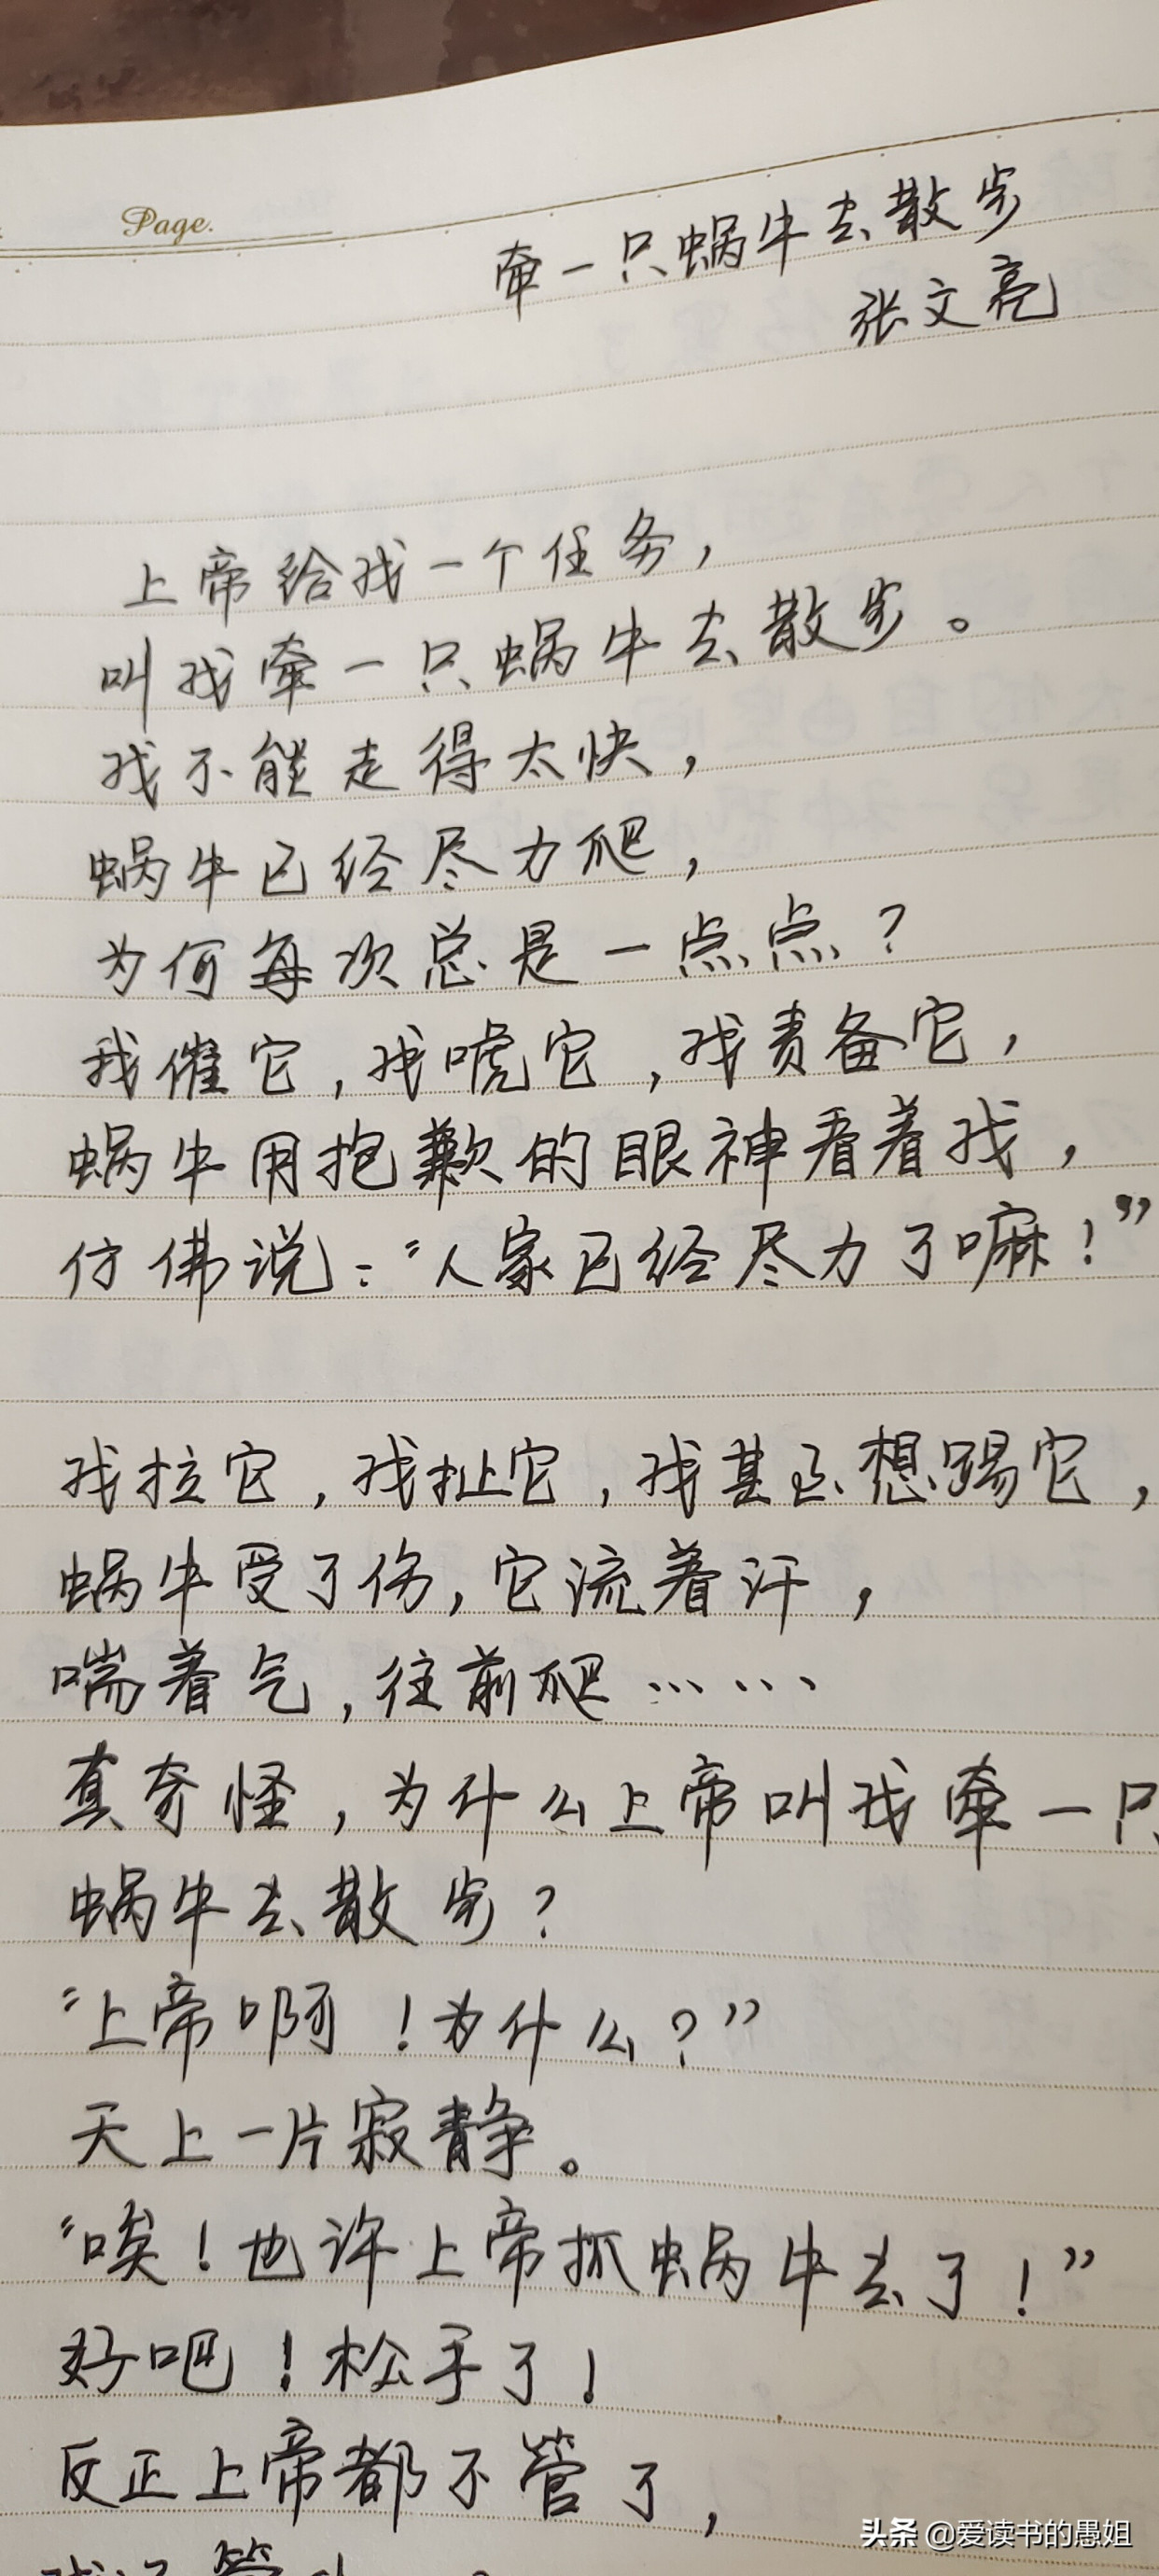 Page.
牵一只蜗牛去散步
张文亮
上帝给我一个任务，
叫我牵一只蜗牛去散步。
我不能走得太快，
蜗牛已经尽力爬，
为何每次总是一点点？
我催它，我唬它，我责备它，
蜗牛用抱歉的眼神看着我，
仿佛说：“人家已经尽力了嘛！”
我拉它，我扯它，我甚至想踢它，
蜗牛受了伤，它流着汗，
喘着气，往前爬……
真奇怪，为什么上帝叫我牵一只
蜗牛去散步？
“上帝啊！为什么？”
天上一片寂静。
“唉！也许上帝抓蜗牛去了！”
好吧！松手了！
反正上帝都不管了，
头条 @爱读书的愚姐